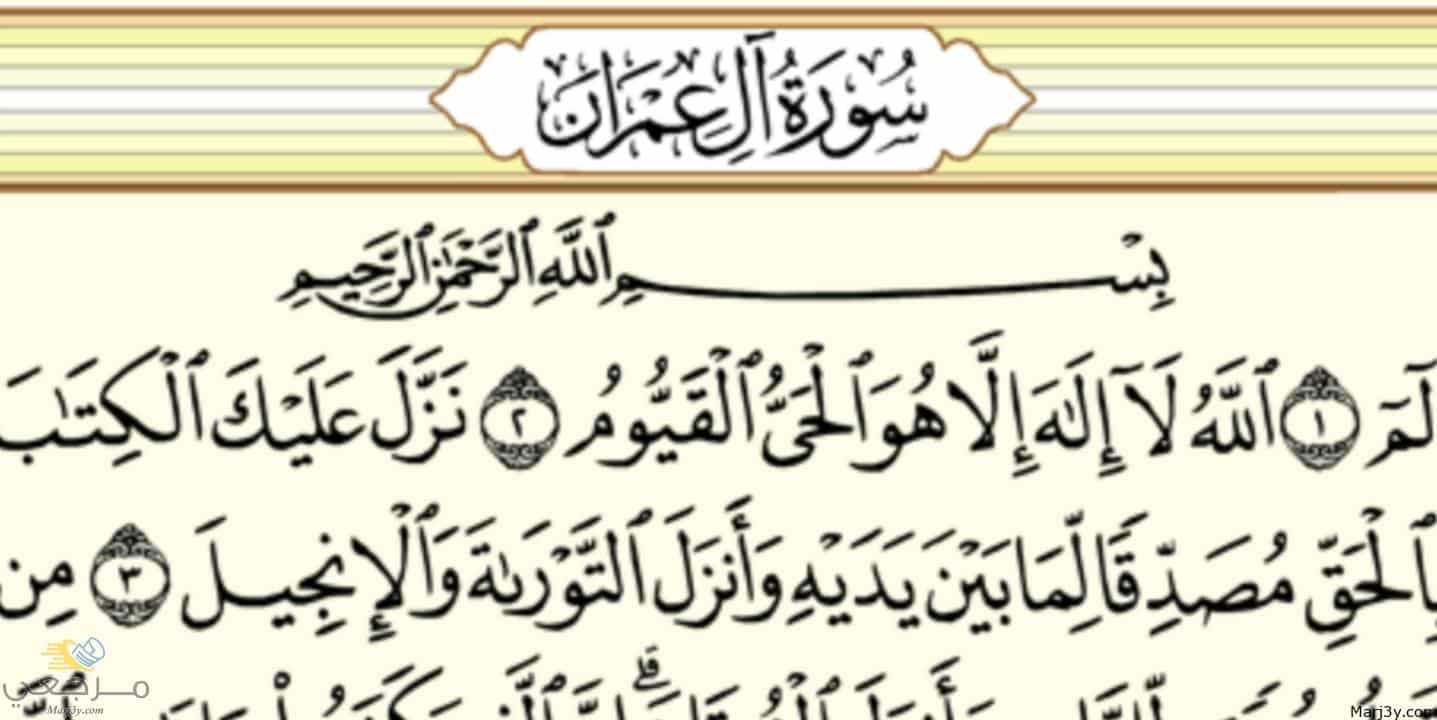 سُورَةُ آلِ عِمْرَانَ
بِسْمِ ٱللَّهِ ٱلرَّحْمَٰنِ ٱلرَّحِيمِ
الٓمٓ ١ ٱللَّهُ لَآ إِلَٰهَ إِلَّا هُوَ ٱلْحَىُّ ٱلْقَيُّومُ ٢ نَزَّلَ عَلَيْكَ ٱلْكِتَٰبَ
بِٱلْحَقِّ مُصَدِّقًا لِّمَا بَيْنَ يَدَيْهِ وَأَنزَلَ ٱلتَّوْرَىٰةَ وَٱلْإِنجِيلَ ٣ مِن
مرجعي
Marj3y.com
Marj3y.com